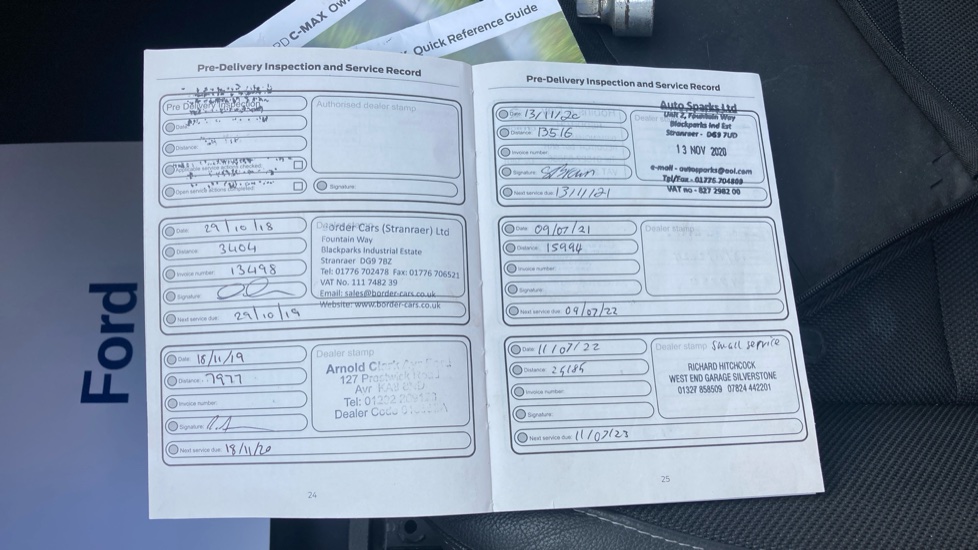 C-MAX
Quick Reference Guide
Ford
Pre-Delivery Inspection and Service Record
Pre Delivery Inspection
Authorised dealer stamp
Date:
Distance:
Signature:
Date: 29/10/18
Distance: 3404
Invoice number: 13498
Signature:
Next service due: 29/10/19
Border Cars (Stranraer) Ltd
Fountain Way
Blackparks Industrial Estate
Stranraer DG9 7BZ
Tel: 01776 702478 Fax: 01776 706521
VAT No. 111 7482 39
Email: sales@border-cars.co.uk
Website: www.border-cars.co.uk
Date: 18/11/19
Distance: 7977
Invoice number:
Signature:
Next service due: 18/11/20
Dealer stamp
Arnold
127
Ayr
Tel:
Dealer Code
24
Pre-Delivery Inspection and Service Record
Date: 13/11/20
Distance: 13516
Invoice number:
Signature:
Next service due: 13/11/21
Auto Sparks Ltd
Unit 2, Fountain Way
Blackparks Ind Est
Stranraer - DG9 7UD
13 NOV 2020
e-mail - autosparks@aol.com
Tel/Fax - 01776 704809
VAT no - 827 2982 00
Date: 09/07/21
Distance: 15994
Invoice number:
Signature:
Next service due: 09/07/22
Dealer stamp
Date: 11/07/22
Distance:
Invoice number:
Signature:
Next service due: 11/07/23
Dealer stamp Small service
RICHARD HITCHCOCK
WEST END GARAGE SILVERSTONE
01327 858509 07824 442201
25